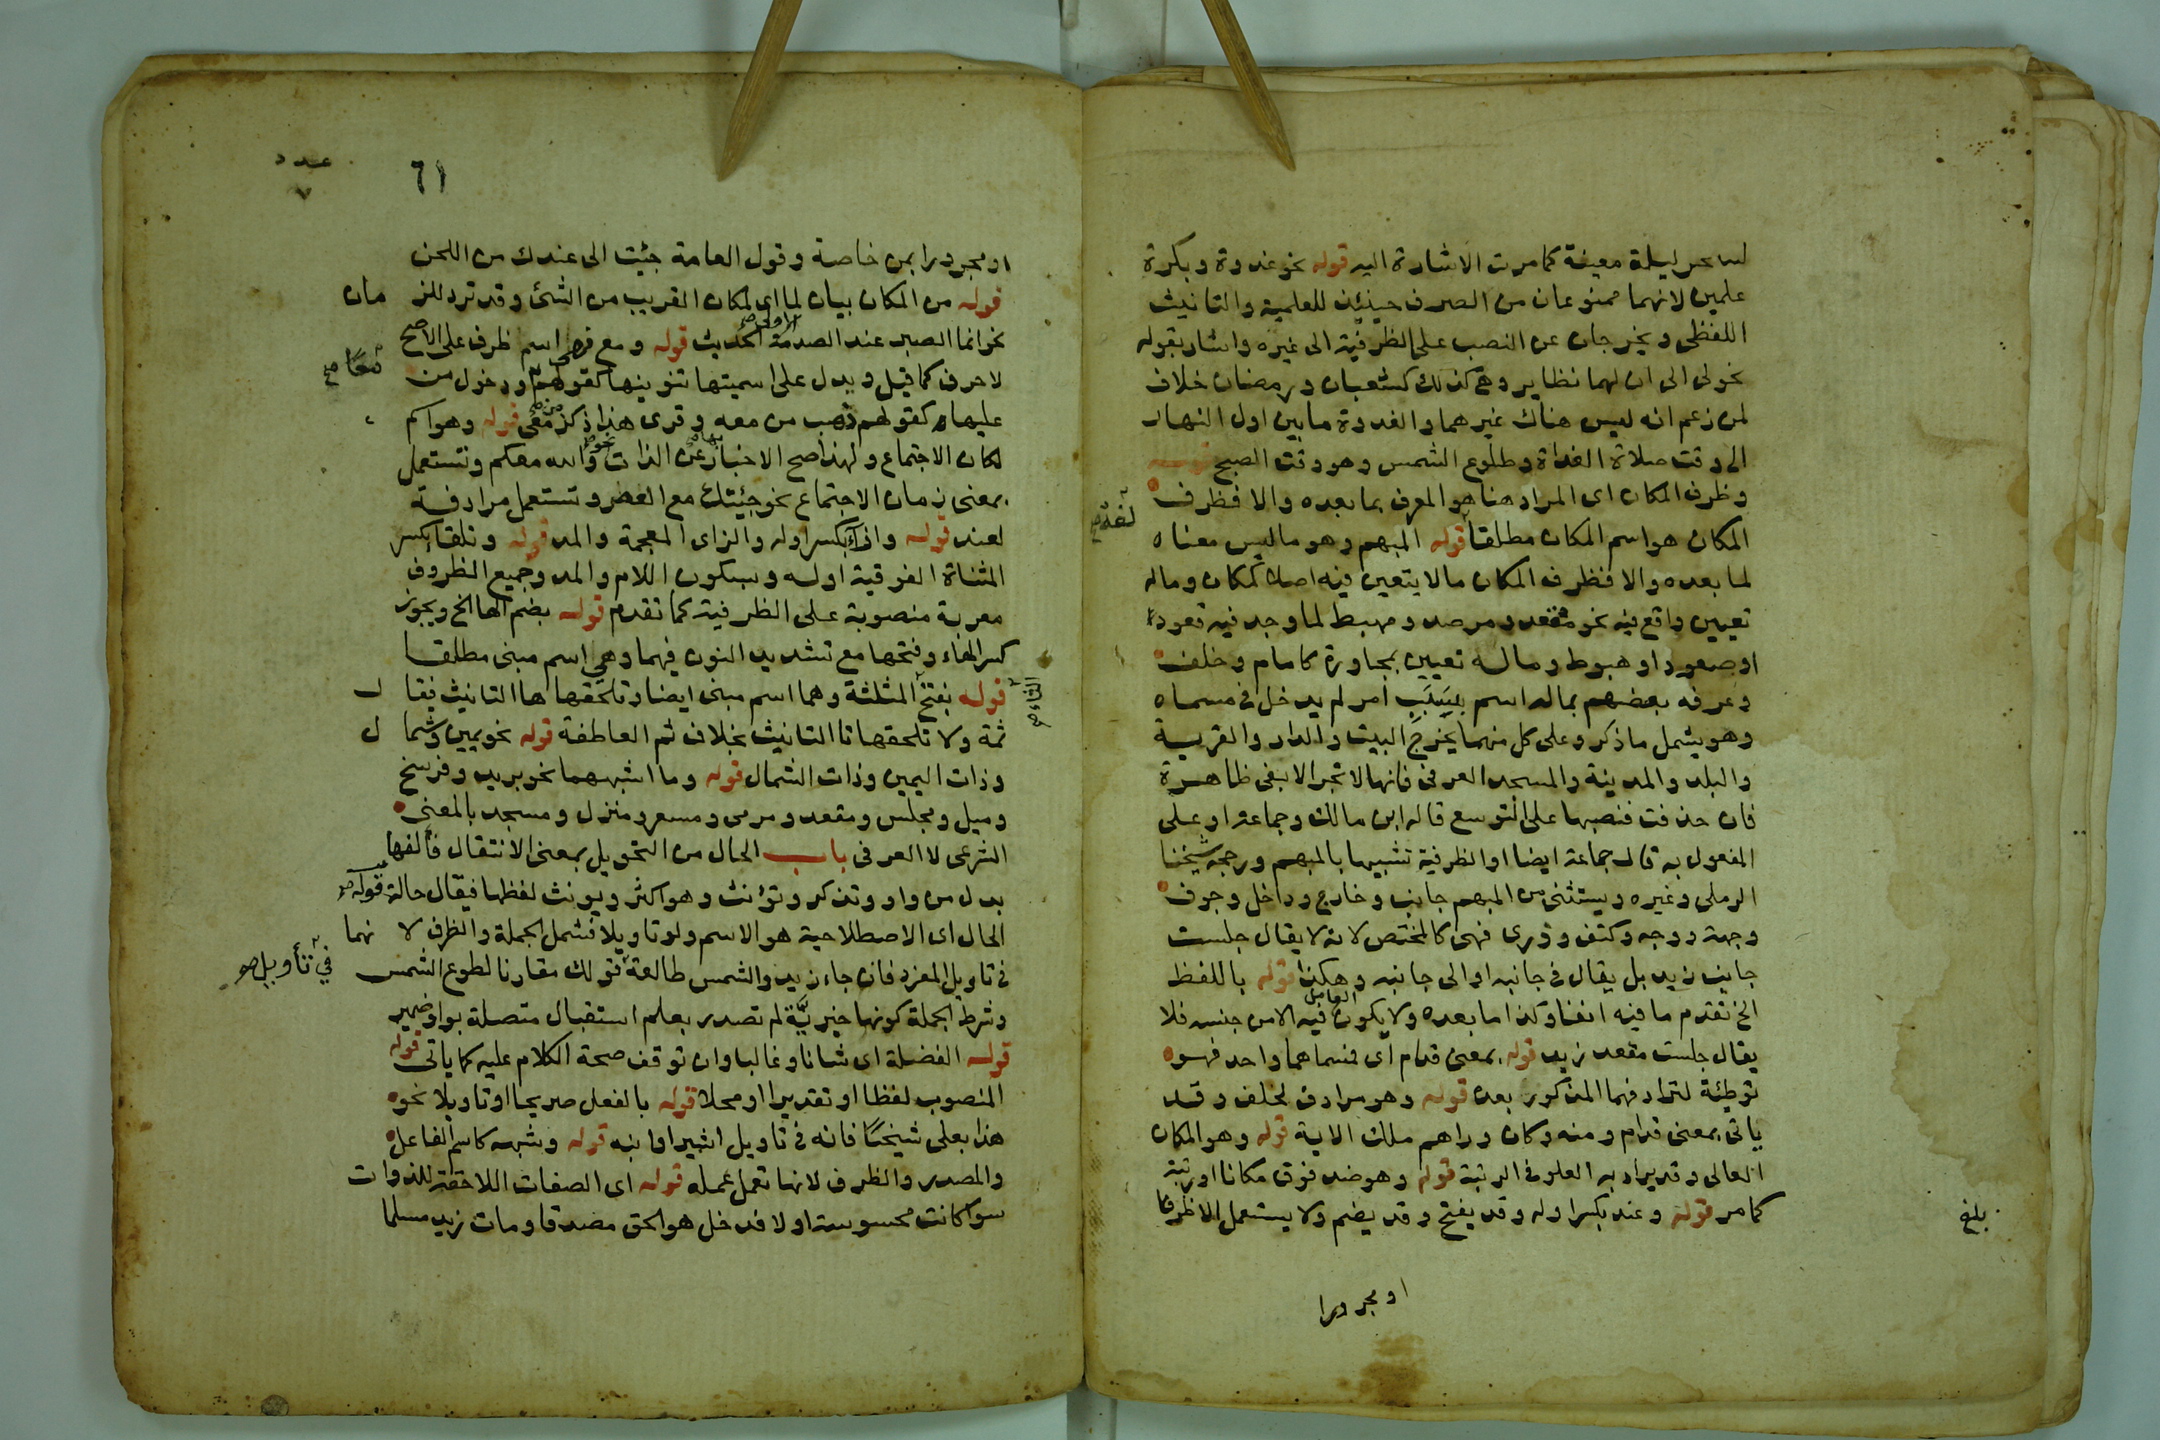 سحر ليلة معينة كما مرت الاشارة اليه قوله نحو غدوة وبكرة
علمين لانهما ممنوعان من الصرف حينئذ للعلمية والتانيث
اللفظي ويخرجان عن النصب على الظرفية الى غيره واشار بقوله
نحو الى ان لهما نظاير وهي كذلك كشعبان ورمضان خلاف
لمن زعم انه ليس هناك غيرهما والغدوة ما بين اول النهار
الى وقت صلاة الغداة وطلوع الشمس وهو وقت الصبح قوله
وظرف المكان اى المراد هنا هو المعرف بما بعده والا فظرف
المكان هو اسم المكان مطلقا قوله المبهم وهو ما ليس معناه
لغة صح
لما بعده والا فظرف المكان ما لا يتعين فيه اصلا كمكان وما له
تعيين واقع فيه نحو مقعد ومرصد ومهبط لما وجد فيه قعود
او صعود او هبوط وما له تعيين بمجاورة كامام وخلف
وعرفه بعضهم بماله اسم بسبب امر لم يدخل فى مسماه
وهو يشمل ما ذكر وعلى كل منهما يخرج البيت والدار والقرية
والبلد والمدينة والمسجد العرفى فانها لا تجر الا بفى ظاهرة
فان حذفت فنصبها على التوسع قاله ابن مالك وجماعة او على
المفعول به قال جماعة ايضا او الظرفية تشبيها بالمبهم ورجحه شيخنا
الرملى وغيره ويستثنى من المبهم جانب وخارج وداخل وجوف
وجهة ووجه وكتف وذرى فهى كالمختص لانه لا يقال جلست
جانب زيد بل يقال فى جانبه او الى جانبه وهكذا قوله باللفظ
الخ تقدم ما فيه انفا وكذا ما بعده ولا يكون العامل فيه الا من جنسه فلا
يقال جلست مقعد زيد قوله بمعنى قدام اى فمسماهما واحد فهو
توطئة لترادفهما المذكور بعده قوله وهو مرادف لخلف وقد
ياتى بمعنى قدام ومنه وكان وراهم ملك الاية قوله وهو المكان
العالى وقد يراد به العلو فى الرتبة قوله وهو ضد فوق مكانا او رتبة
كما مر قوله وعند بكسر اوله وقد يفتح وقد يضم ولا يستعمل الا ظرفا
بلغ
او مجرورا
عدد
٧
٦١
او مجرورا بمن خاصة وقول العامة جئت الى عندك من اللحن
قوله من المكان بيان لما اى لمكان القريب من الشئ وقد ترد للزمان
نحو انما الصبر عند الصدمة الاولى صح الحديث قوله ومع فهى اسم ظرف على الاصح
لا حرف كما قيل ويدل على اسميتها تنوينها كقولهم ودخول من
معا صح
عليها كقولهم ذهب من معه وقرى هذا ذكر من معى قوله وهو اسم
لمكان الاجتماع ولهذا صح الاخبار بها عن الذات نحو والله معكم وتستعمل
بمعنى زمان الاجتماع نحو جئتك مع العصر وتستعمل مرادفة
لعند قوله وازاء بكسر اوله والزاى المعجمة والمد قوله وتلقاء بكسر
المثناة الفوقية اوله وسكون اللام والمد وجميع الظروف
معربة منصوبة على الظرفية كما تقدم قوله بضم الها الخ ويجوز
كسر الهاء وفتحها مع تشديد النون فيهما وهى اسم مبنى مطلقا
قوله بفتح المثلثة وهما اسم مبنى ايضا وتلحقها ها التانيث فيقال
الثاء صح
ثمة ولا تلحقها تا التانيث بخلاف ثم العاطفة قوله نحو يمين وشمال
وذات اليمين وذات الشمال قوله وما اشبههما نحو بريد وفرسخ
وميل ومجلس ومقعد ومرمى ومسعر ومنزل ومسجد بالمعنى
الشرعى لا العرفى باب الحال من التحويل بمعنى الانتقال فألفها
بدل من واو وتذكر وتؤنث وهو اكثر ويونث لفظها فيقال حالة قوله صح
الحال اى الاصطلاحية هو الاسم ولو تاويلا فشمل الجملة والظرف لانهما
فى تاويل المفرد فان جاء زيد والشمس طالعة قولك مقارنا لطلوع الشمس
في تأويل صح
وشرط الجملة كونها خبرية لم تصدر بعلم استقبال متصلة بواو ضمير
قوله الفضلة اى شانا وغالبا وان توقف صحة الكلام عليه كما ياتى قوله
المنصوب لفظا او تقديرا او محلا قوله بالفعل صريحا او تاويلا نحو
هذا بعلى شيخا فانه فى تاويل اشير او انبه قوله وشبهه كاسم الفاعل
والمصدر والظرف لانها تعمل عمله قوله اى الصفات اللاحقة للذوات
سوا كانت محسوسة او لا فدخل هو الحق مصدقا ومات زيد مسلما